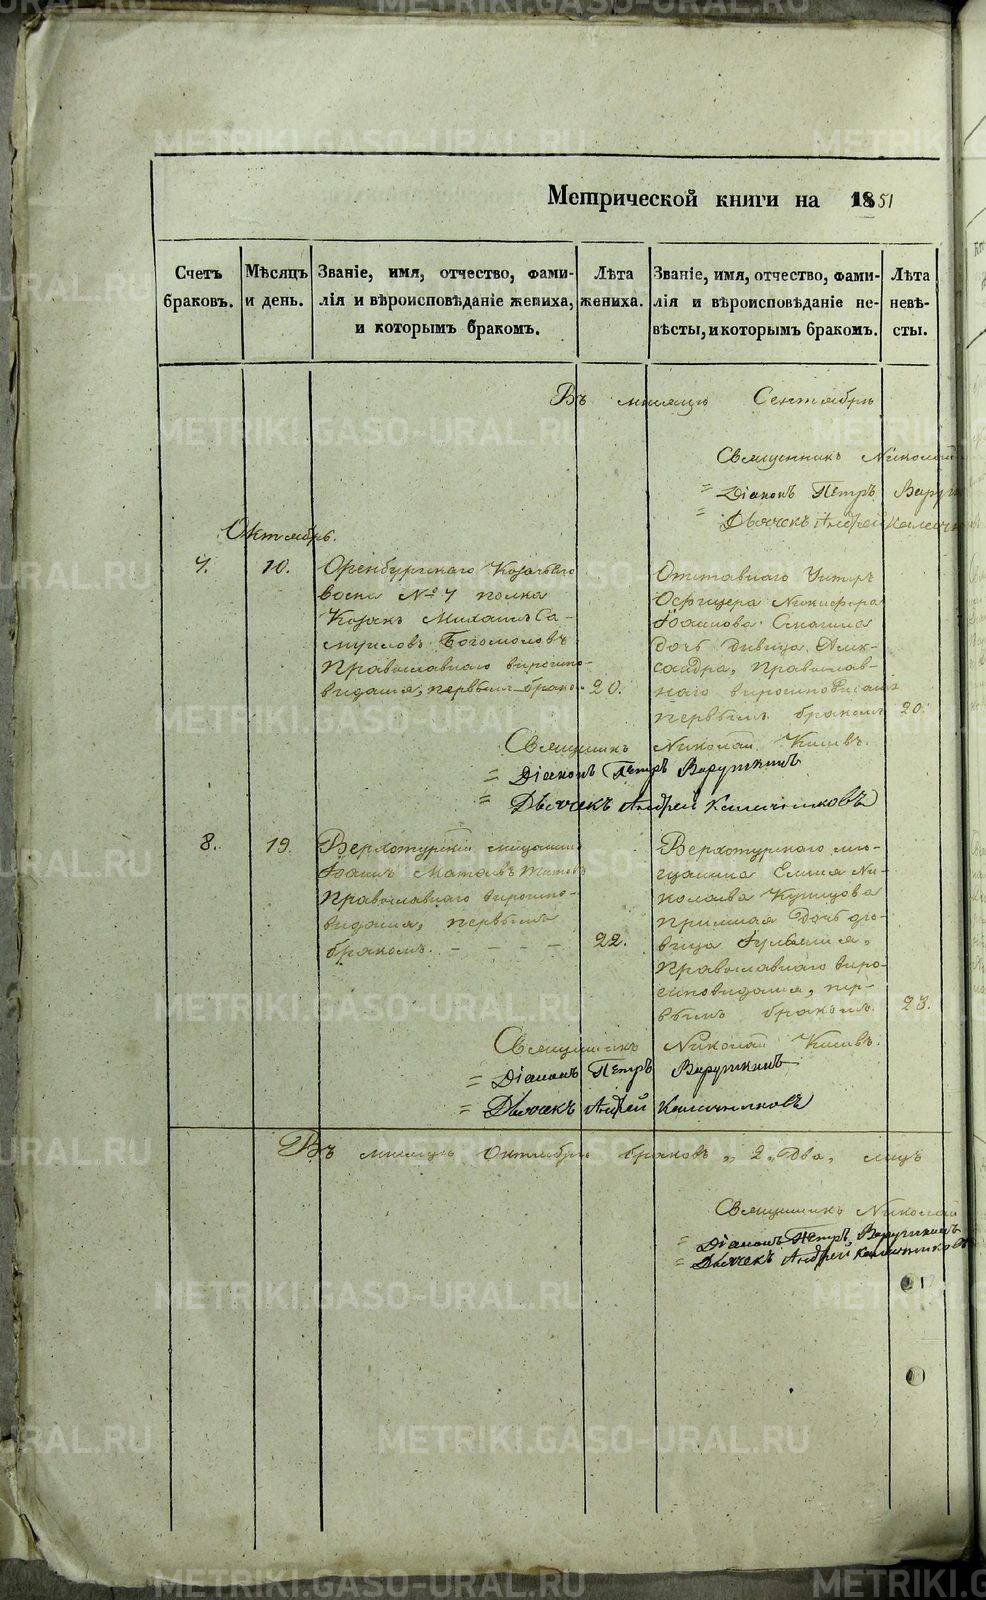 Метрической книги на 1851
Счетъ браковъ.
Мѣсяцъ и день.
Званіе, имя, отчество, фами-
лія и вѣроисповѣданіе жениха,
и которымъ бракомъ.
Лѣта жениха.
Званіе, имя, отчество, фами-
лія и вѣроисповѣданіе не-
вѣсты, и которымъ бракомъ.
Лѣта невѣ-
сты.
Въ мѣсяцѣ Сентябрѣ
Священникъ Николай
= Діаконъ Петръ
= Дьячекъ Андрей
Октябрь.
7. 10.
Оренбургскаго Козачьяго
воска № 7 полка
Козакъ Михаилъ Са-
муиловъ Богомоловъ
Православнаго вѣроиспо-
вѣданія, первымъ бракомъ 20.
Отставнаго Унтеръ
Офицера Никифора
Іоаннова
дочь дѣвица Алек-
сандра, Православ-
наго вѣроисповѣданія
первымъ бракомъ 20.
Священникъ Николай
= Діаконъ Петръ Варушкинъ
= Дьячекъ Андрей Калачниковъ
8. 19.
Верхотурскій мѣщанинъ
Іоаннъ
Православнаго вѣроиспо-
вѣданія, первымъ
бракомъ. - - - - 22.
Верхотурскаго мѣ-
щанина
колаева Купцова
дочь дѣ-
вица Іуліанія,
Православнаго вѣро-
исповѣданія, пер-
вымъ бракомъ. 23.
Священникъ Николай
= Діаконъ Петръ Варушкинъ
= Дьячекъ Андрей Калачниковъ
Въ мѣсяцѣ Октябрѣ браковъ „2„ Два, лицъ
Священникъ Николай
= Діаконъ Петръ Варушкинъ
= Дьячекъ Андрей Калачниковъ
METRIKI.GASO-URAL.RU